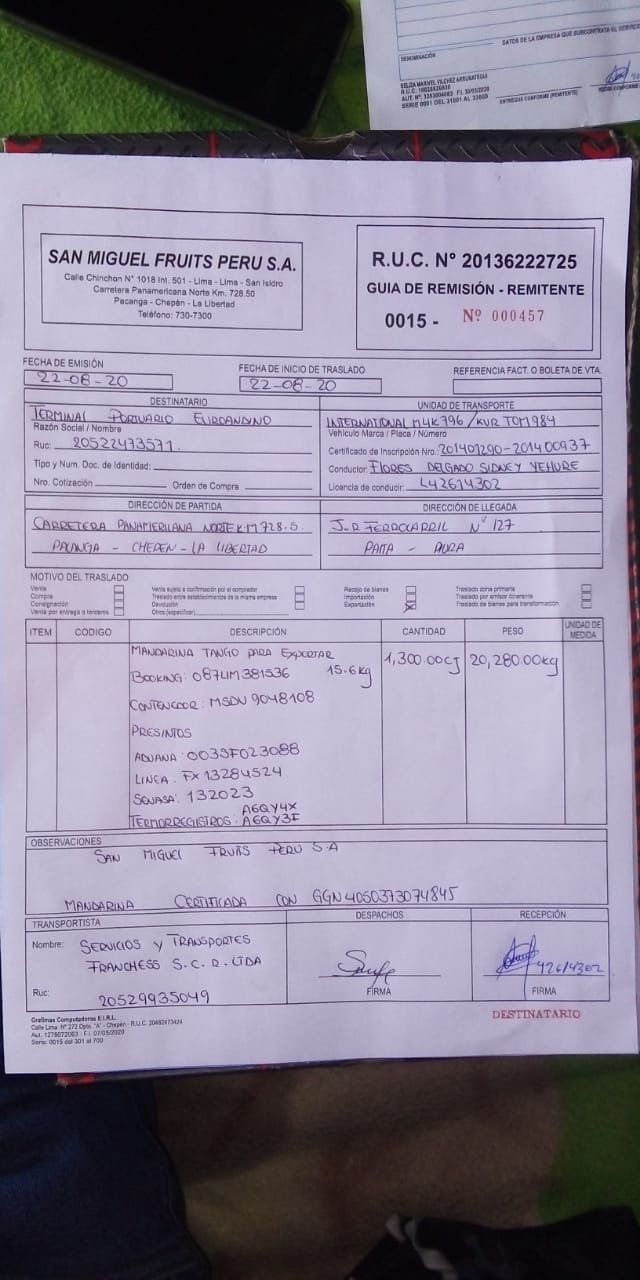 DATOS DE LA EMPRESA QUE SUBCONTRATA EL SERVICIO
DENOMINACIÓN
R.U.C.
SERIE 0001 DEL 31001 AL 33000
ENTREGUE CONFORME (REMITENTE)
SAN MIGUEL FRUITS PERU S.A.
Calle Chinchon N° 1018 Int. 501 - Lima - Lima - San Isidro
Carretera Panamericana Norte Km. 728.50
Pacanga - Chepén - La Libertad
Teléfono: 730-7300
R.U.C. N° 20136222725
GUIA DE REMISIÓN - REMITENTE
0015 - Nº 000457
FECHA DE EMISIÓN
22-08-20
FECHA DE INICIO DE TRASLADO
22-08-20
REFERENCIA FACT. O BOLETA DE VTA.
DESTINATARIO
TERMINAL PORTUARIO EUROANDINO
Razón Social / Nombre
Ruc: 20522473571
Tipo y Num. Doc. de Identidad:
Nro. Cotización Orden de Compra
UNIDAD DE TRANSPORTE
INTERNATIONAL M4K796 / KUR TOM984
Vehículo Marca / Placa / Número
Certificado de Inscripción Nro.: 201401290-201400937
Conductor: FLORES DELGADO SIDNEY YEHURE
Licencia de conducir: L42614302
DIRECCIÓN DE PARTIDA
CARRETERA PANAMERICANA NORTE KM 728.5
PACANGA - CHEPEN - LA LIBERTAD
DIRECCIÓN DE LLEGADA
J.R FERROCARRIL N° 127
PAITA - PIURA
MOTIVO DEL TRASLADO
Venta
Compra
Consignación
Venta por entrega a terceros
Venta sujeta a confirmación por el comprador
Traslado entre establecimientos de la misma empresa
Devolución
Otros (especificar)
Recojo de bienes
Importación
Exportación
Traslado zona primaria
Traslado por emisor itinerante
Traslado de bienes para transformación
ITEM CODIGO DESCRIPCIÓN CANTIDAD PESO UNIDAD DE MEDIDA
MANDARINA TANGO PARA EXPORTAR 1,300.00CJ 20,280.00kg
BOOKING: 087LIM381536 15.6kg
CONTENEDOR: MSDU 9048108
PRESINTOS
ADUANA: 003SF023088
LINEA: FX13284524
SENASA: 132023
A6QY4X
TERMORREGISTROS: A6QY3F
OBSERVACIONES
SAN MIGUEL FRUITS PERU S.A
MANDARINA CERTIFICADA CON GGN 4050373074845
TRANSPORTISTA
Nombre: SERVICIOS Y TRANSPORTES
FRANCHESS S.C.R.LTDA
Ruc: 20529935049
DESPACHOS
FIRMA
RECEPCIÓN
42614302
FIRMA
Grafimas Computadoras E.I.R.L.
Calle Lima N° 272 Dpto. "A" - Chepén - R.U.C. 20482473424
Aut. 1279072063 - F.I. 07/05/2020
Serie: 0015 del 301 al 700
DESTINATARIO